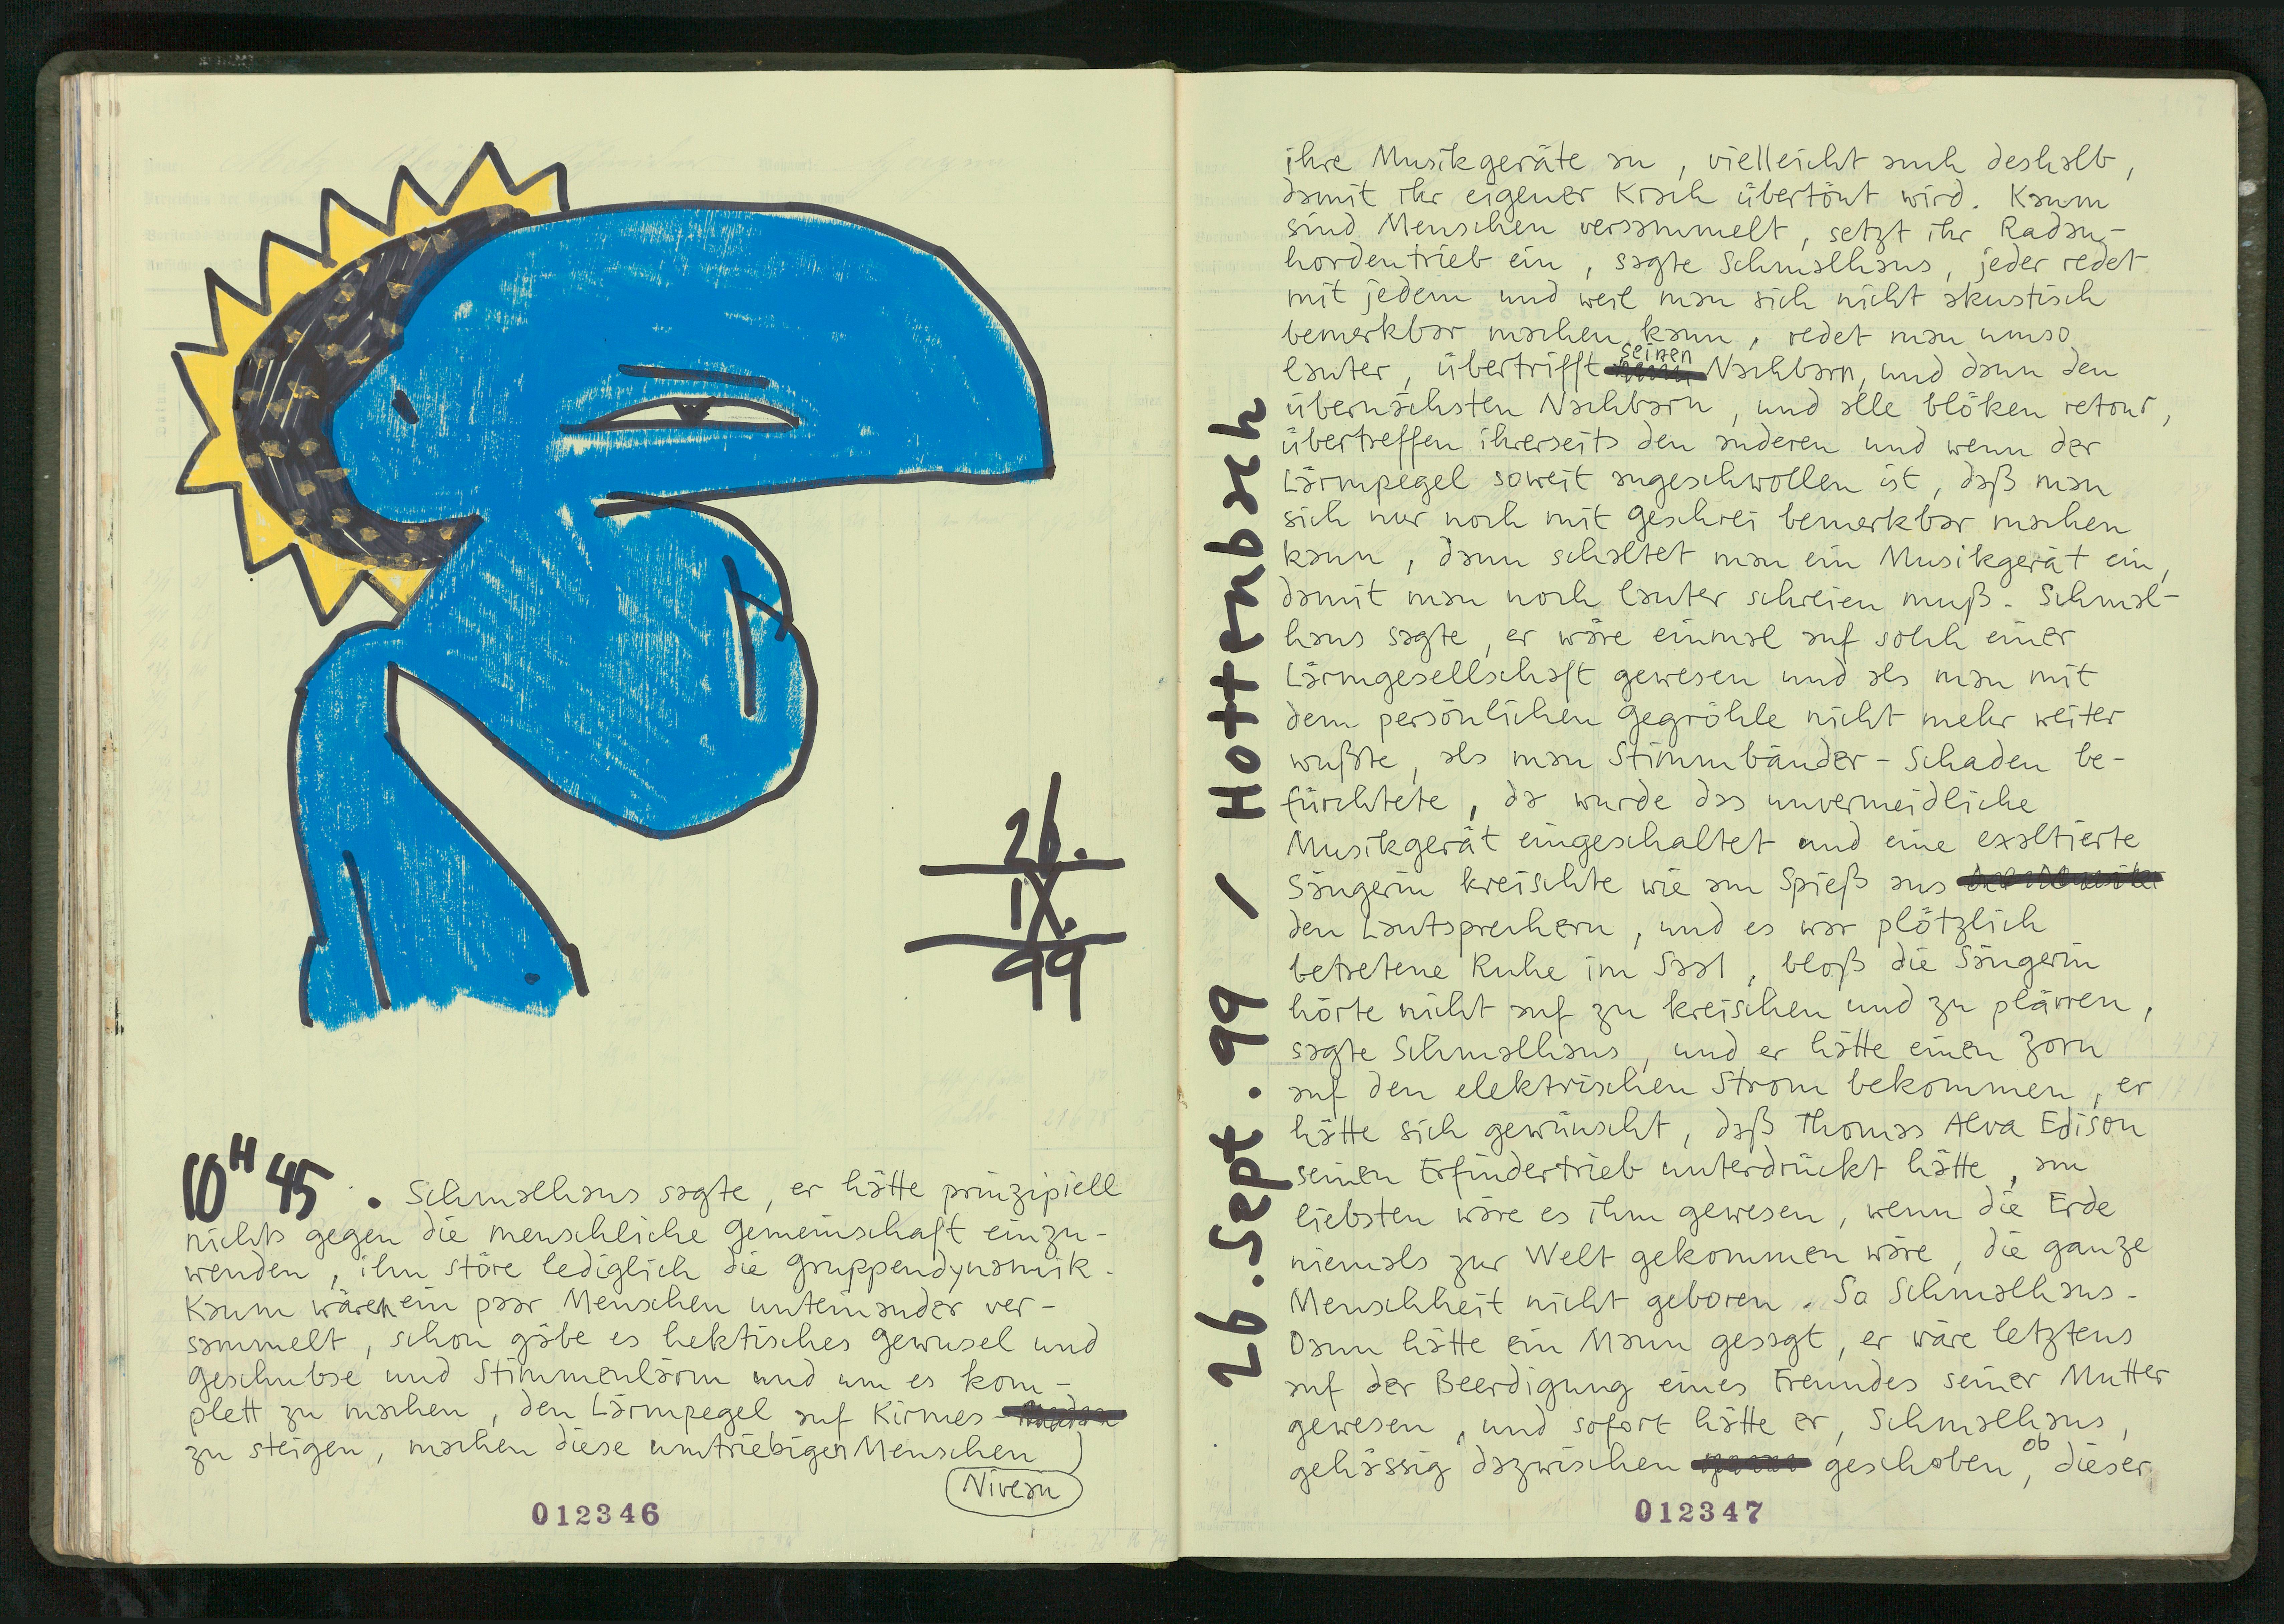 26.
IX.
99
10H45. Schmalhaus sagte, er hätte prinzipiell
nichts gegen die menschliche Gemeinschaft einzu-
wenden, ihn störe lediglich die Gruppendynamik.
Kaum wären ein paar Menschen unteinander ver-
sammelt, schon gäbe es hektisches Gewusel und
Geschubse und Stimmenlärm und um es kom-
plett zu machen, den Lärmpegel auf Kirmes-
zu steigen, machen diese umtriebigen Menschen
Niveau
012346
26. Sept. 99 / Hottenbach
ihre Musikgeräte an, vielleicht auch deshalb,
damit ihr eigener Krach übertönt wird. Kaum
sind Menschen versammelt, setzt ihr Radau-
hordentrieb ein, sagte Schmalhaus, jeder redet
mit jedem und weil man sich nicht akustisch
bemerkbar machen kann, redet man umso
lauter, übertrifft seinen Nachbarn, und dann den
übernächsten Nachbarn, und alle blöken retour,
übertreffen ihrerseits den anderen und wenn der
Lärmpegel soweit angeschwollen ist, daß man
sich nur noch mit Geschrei bemerkbar machen
kann, dann schaltet man ein Musikgerät ein,
damit man noch lauter schreien muß. Schmal-
haus sagte, er wäre einmal auf solch einer
Lärmgesellschaft gewesen und als man mit
dem persönlichen Gegröhle nicht mehr weiter
wußte, als man Stimmbänder-Schaden be-
fürchtete, da wurde das unvermeidliche
Musikgerät eingeschaltet und eine exaltierte
Sängerin kreischte wie am Spieß aus
den Lautsprechern, und es war plötzlich
betretene Ruhe im Saal, bloß die Sängerin
hörte nicht auf zu kreischen und zu plärren,
sagte Schmalhaus, und er hätte einen Zorn
auf den elektrischen Strom bekommen, er
hätte sich gewünscht, daß Thomas Alva Edison
seinen Erfindertrieb unterdrückt hätte, am
liebsten wäre es ihm gewesen, wenn die Erde
niemals zur Welt gekommen wäre, die ganze
Menschheit nicht geboren. So Schmalhaus.
Dann hätte ein Mann gesagt, er wäre letztens
auf der Beerdigung eines Freundes seiner Mutter
gewesen, und sofort hätte er, Schmalhaus,
gehässig dazwischen geschoben, ob dieser
012347